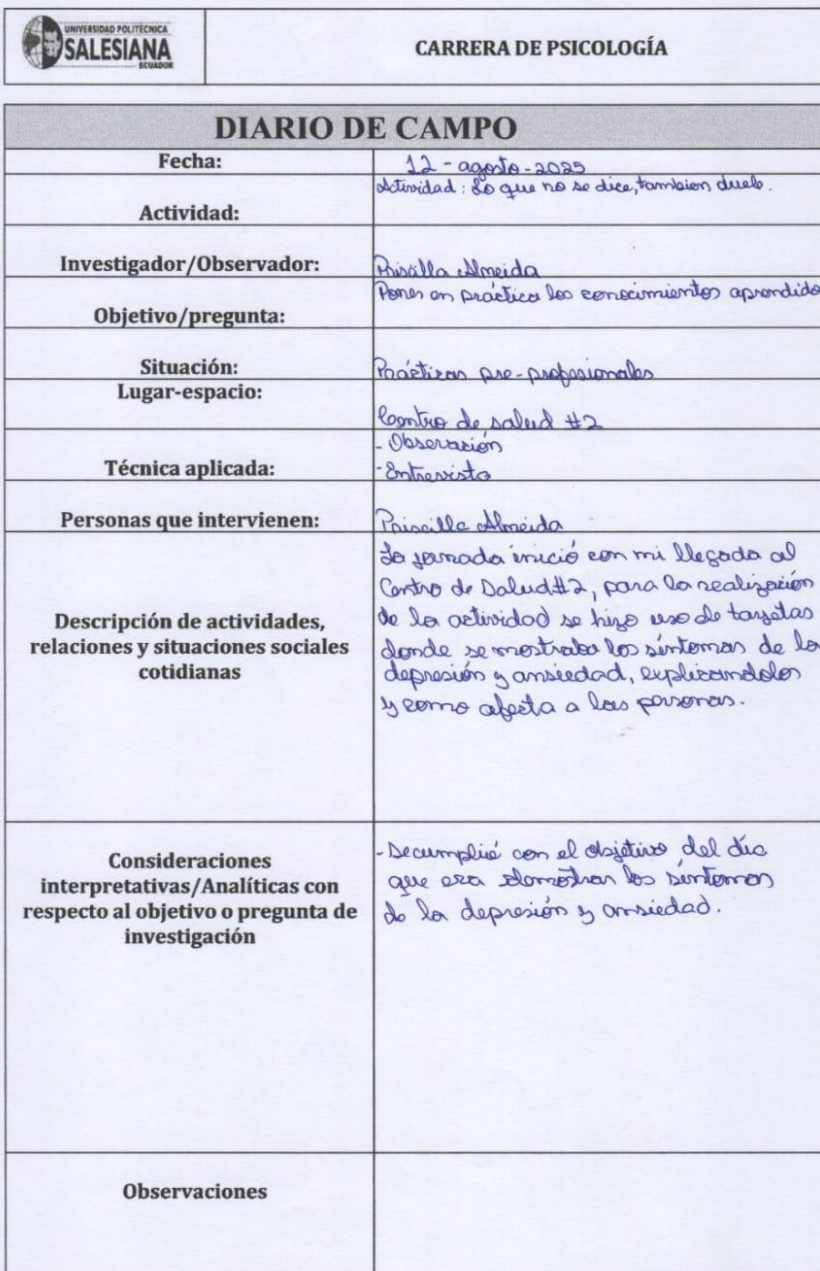 UNIVERSIDAD POLITÉCNICA
SALESIANA
ECUADOR
CARRERA DE PSICOLOGÍA
DIARIO DE CAMPO
Fecha:
12 - agosto - 2025
Actividad:
Actividad: Lo que no se dice, tambien duele.
Investigador/Observador:
Priscilla Almeida
Objetivo/pregunta:
Poner en práctica los conocimientos aprendido
Situación:
Prácticas pre-profesionales
Lugar-espacio:
Centro de salud #2
Técnica aplicada:
- Observación
- Entrevista
Personas que intervienen:
Priscilla Almeida
Descripción de actividades,
relaciones y situaciones sociales
cotidianas
La jornada inició con mi llegada al
Centro de Salud #2, para la realización
de la actividad se hizo uso de tarjetas
donde se mostraba los síntomas de la
depresión y ansiedad, explicandolos
y como afecta a las personas.
Consideraciones
interpretativas/Analíticas con
respecto al objetivo o pregunta de
investigación
- Secumplió con el objetivo del día
que era demostrar los síntomas
de la depresión y ansiedad.
Observaciones